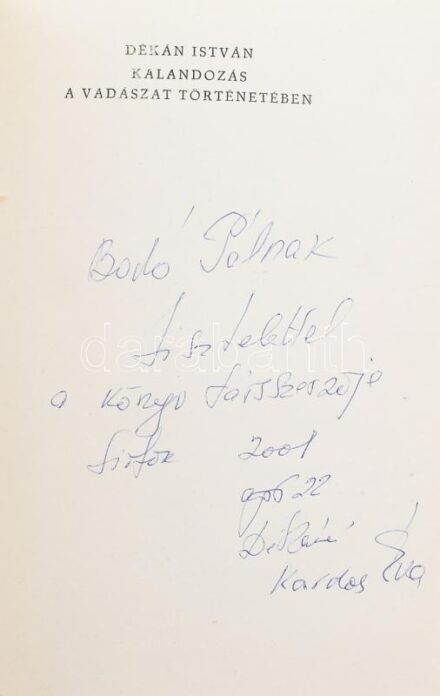 DÉKÁN ISTVÁN
KALANDOZÁS
A VADÁSZAT TÖRTÉNETÉBEN
Bodó Pálnak
tisztelettel
darabanth
a könyv társszerzője
Siófok 2001
apr 22
Dékáné
Kardos Éva